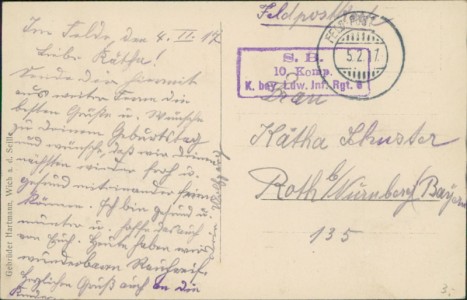 Im Felde den 4. II. 17
Liebe Kätha!
Sende dir hiermit
aus weiter Ferne die
besten Grüße u. Wünsche
zu deinem Geburtstag
und wünsche, daß wir deinen
nächsten wieder froh u.
gesund miteinander feiern
können. Ich bin gesund u.
munter u. hoffe das auch
von Euch. Heute haben wir
wunderbaren Rauhreif.
Herzlichen Gruß auch an die
Kinder
Gebrüder Hartmann, Wich a. d. Seille
Feldpostkarte
5.2.
S. B.
10. Komp.
K. bay. Ldw. Inf. Rgt. 8
Frau
Kätha Schuster
Roth b/Nürnberg Bayern
135
3,-